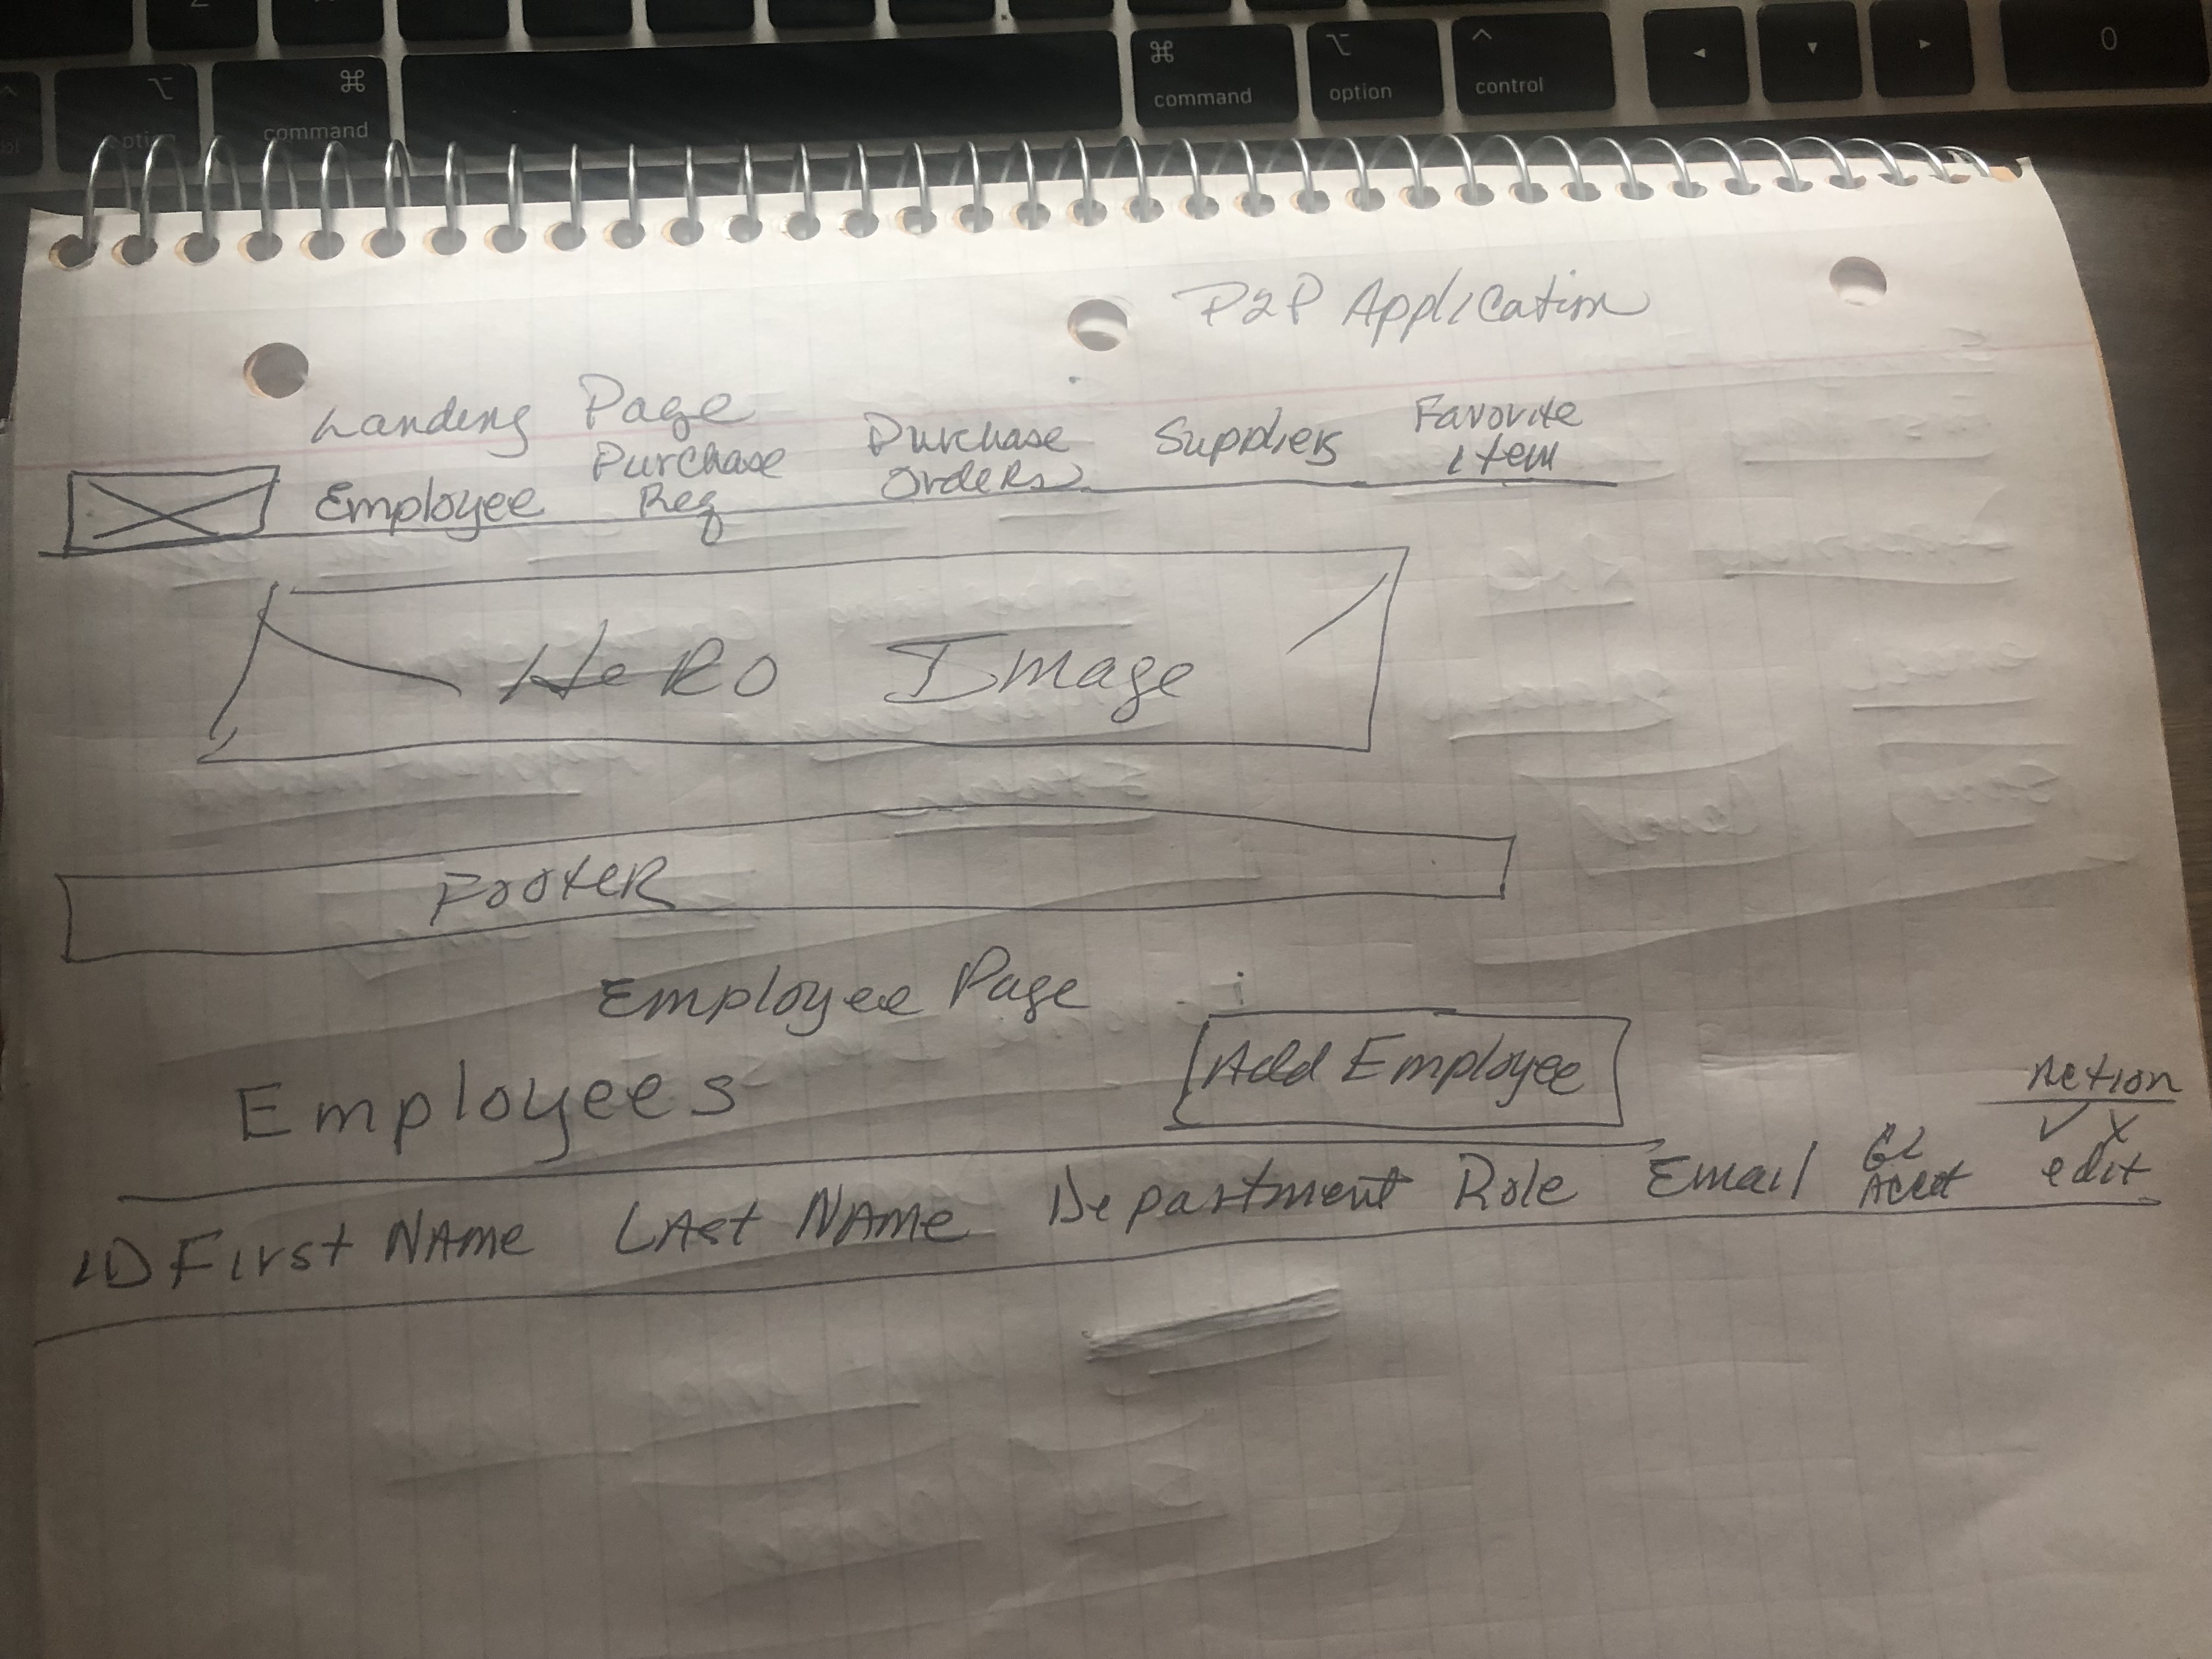 command
option
control
0
option
command
P2P Application
Landing Page
Employee
Purchase
Req
Purchase
Orders
Suppliers
Favorite
Item
Hero Image
Footer
Employee Page
Employees
Add Employee
Action
ID First Name Last Name Department Role Email GL
Acct
edit